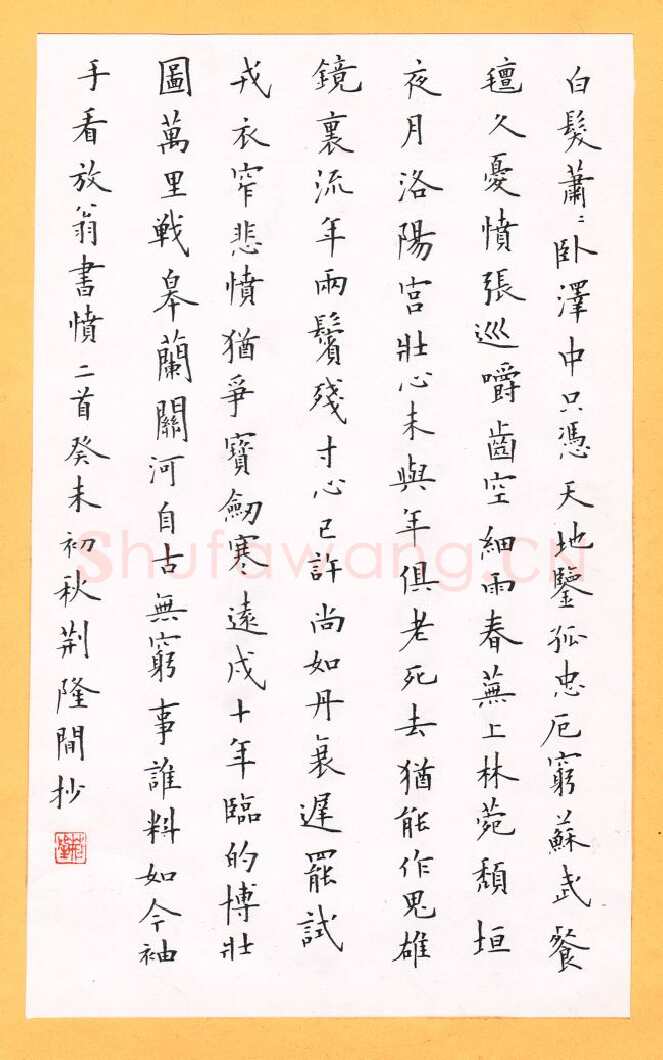 白髮蕭〻卧澤中只憑天地鑒孤忠厄窮蘇武餐
氊久憂憤張巡嚼齒空細雨春蕪上林苑頹垣
夜月洛陽宮壯心未與年俱老死去猶能作鬼雄
鏡裏流年兩鬢殘寸心已許尚如丹衰遲罷試
戎衣窄悲憤猶爭寶劒寒遠戍十年臨的博壯
圖萬里戰皋蘭關河自古無窮事誰料如今袖
手看放翁書憤二首癸未初秋荆隆間抄
Shufawang.cn